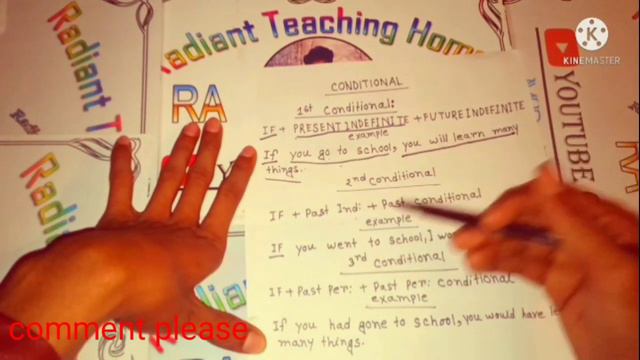 Radiant Teaching Home
KINEMASTER
Radiant T
RA
YOUTUBE
CONDITIONAL
1st Conditional:
IF + PRESENT INDEFINITE + FUTURE INDEFINITE
example
If you go to school, you will learn many
things.
2nd conditional
IF + Past Ind: + Past conditional
example
IF you went to school, I
3rd conditional
IF + Past Per: + Past per: conditional
example
If you had gone to school, you would have
many things.
comment please